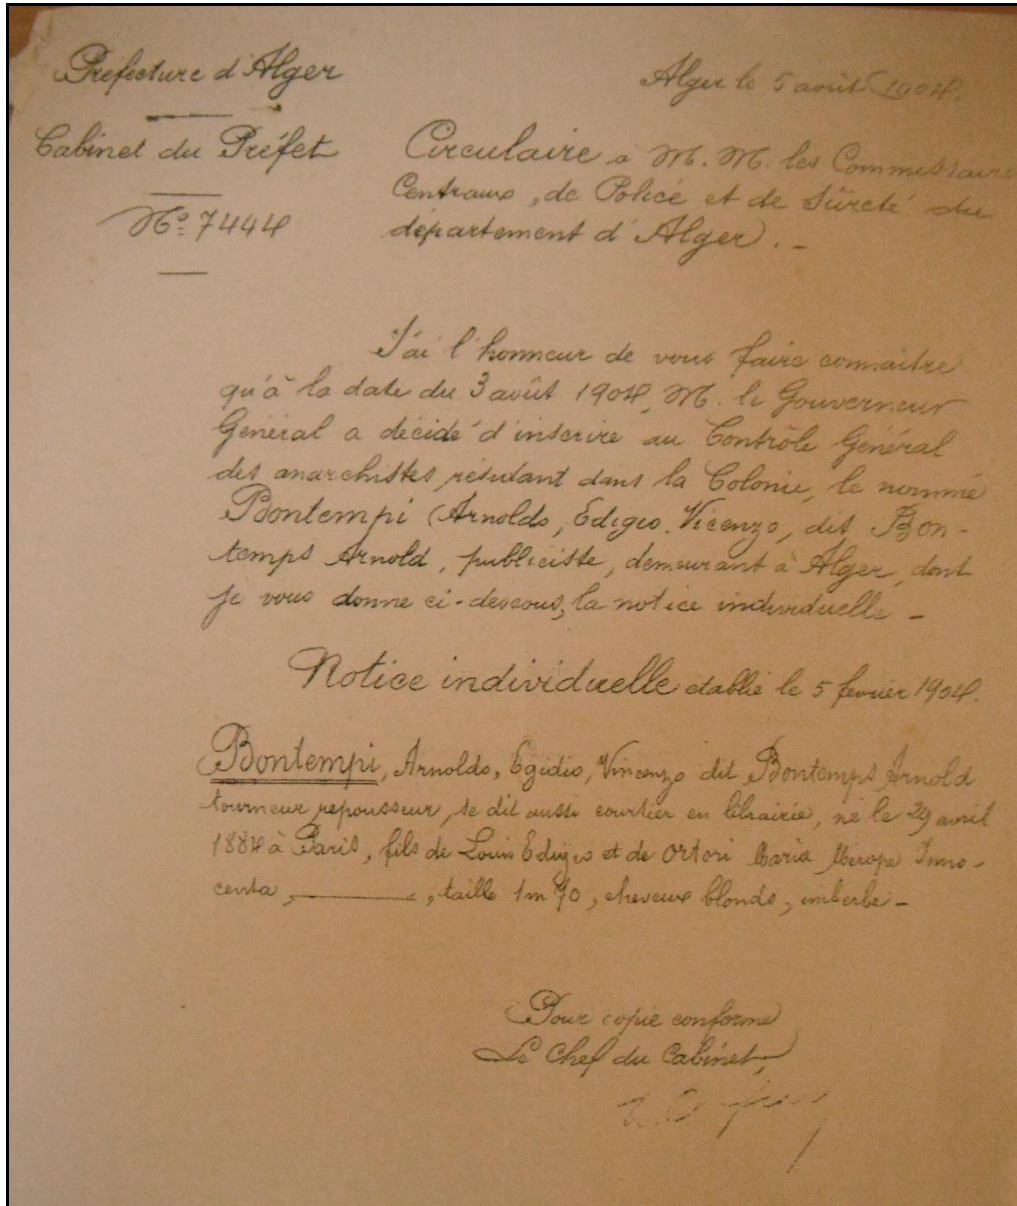 Préfecture d'Alger
Alger le 5 août 1904.
Cabinet du Préfet
Nº 7444
Circulaire a M. M. les Commissaire
Centraux, de Police et de Sûreté du
département d'Alger. -
J'ai l'honneur de vous faire connaître
qu'à la date du 3 août 1904, M. le Gouverneur
Général a décidé d'inscrire au Contrôle Général
des anarchistes résidant dans la Colonie, le nommé
Bontempi (Arnoldo, Edigio, Vicenzo, dit Bon-
temps Arnold, publiciste, demeurant à Alger, dont
je vous donne ci-dessous, la notice individuelle -
Notice individuelle établie le 5 février 1904.
Bontempi, Arnoldo, Egidio, Vincenzo dit Bontemps Arnold
tourneur repousseur, se dit aussi courtier en librairie, né le 29 avril
1884 à Paris, fils de Louis Edigio et de Ortori Maria Merope Inno-
centa, , taille 1m70, cheveux blonds, imberbe -
Pour copie conforme
Le Chef du Cabinet,